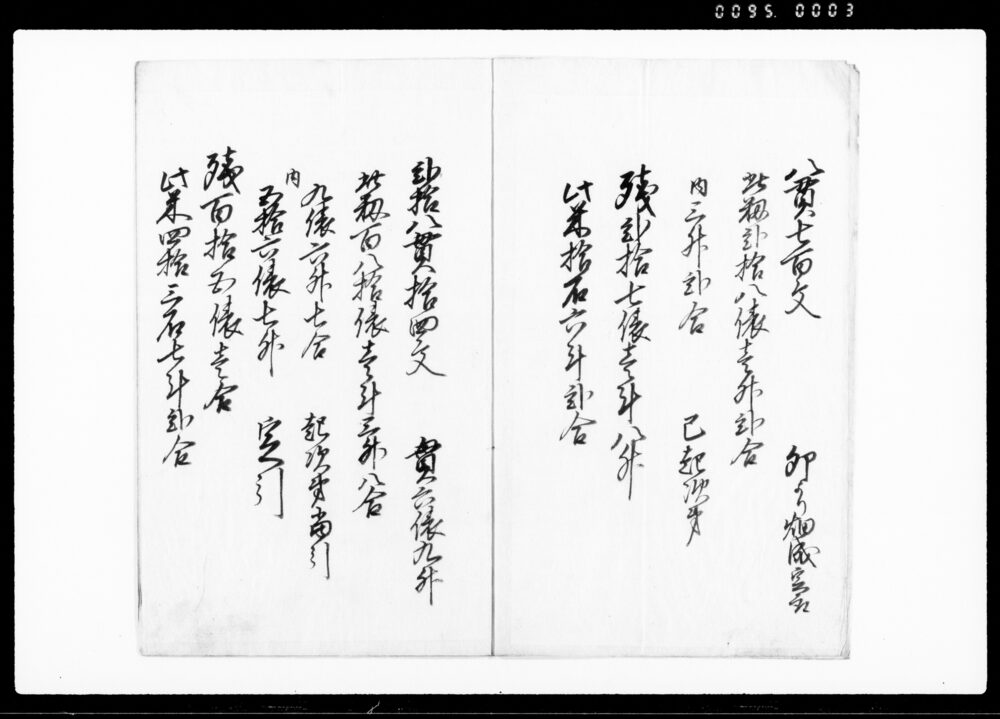 0095.0003
八貫七百文 卯より畑成定引
此籾弐拾八俵壱升弐合
内三升弐合 已起次第
残弐拾七俵壱斗八升
此米拾石六斗弐合
弐拾八貫拾四文 貫六俵九升
此籾百八拾俵壱斗三升八合
内 九俵六升七合 起次第当引
五拾六俵七升 定引
残百拾五俵壱合
此米四拾三石七斗弐合